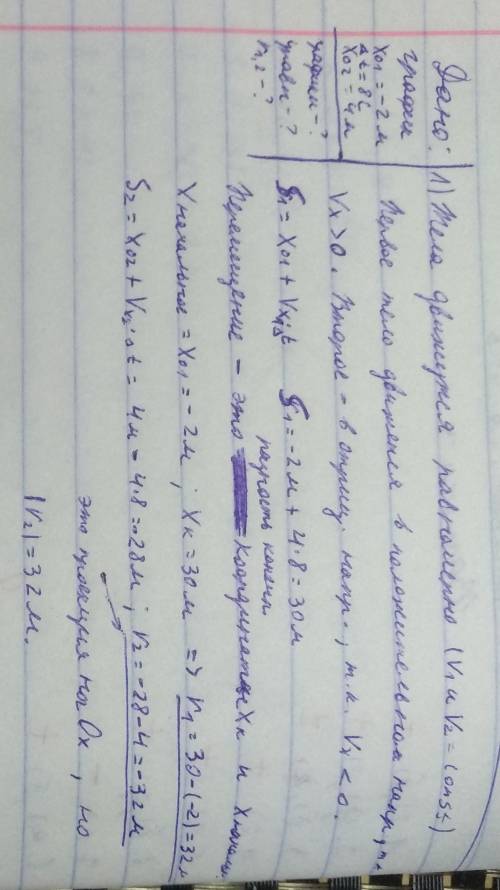 Дано:
график
x01 = -2 м
Δt = 8 с
x02 = 4 м
график - ?
уравн - ?
r1,2 - ?
1) Тела движутся равномерно (V1 и V2 = const)
Первое тело движется в положительном напр, т.к
Vx > 0. Второе - в отриц. напр., т.к. Vx < 0.
S1 = x01 + Vx1Δt S1 = -2 м + 4·8 = 30 м
Перемещение - это разность конечн
координаты Xк и Xначальн.
Xначальное = X01 = -2 м ; Xк = 30 м => r1 = 30-(-2) = 32 м
S2 = X02 + Vx2·Δt = 4 м - 4·8 = -28 м ; r2 = -28-4 = -32 м
это проекция на Ox, но
|r2| = 32 м.